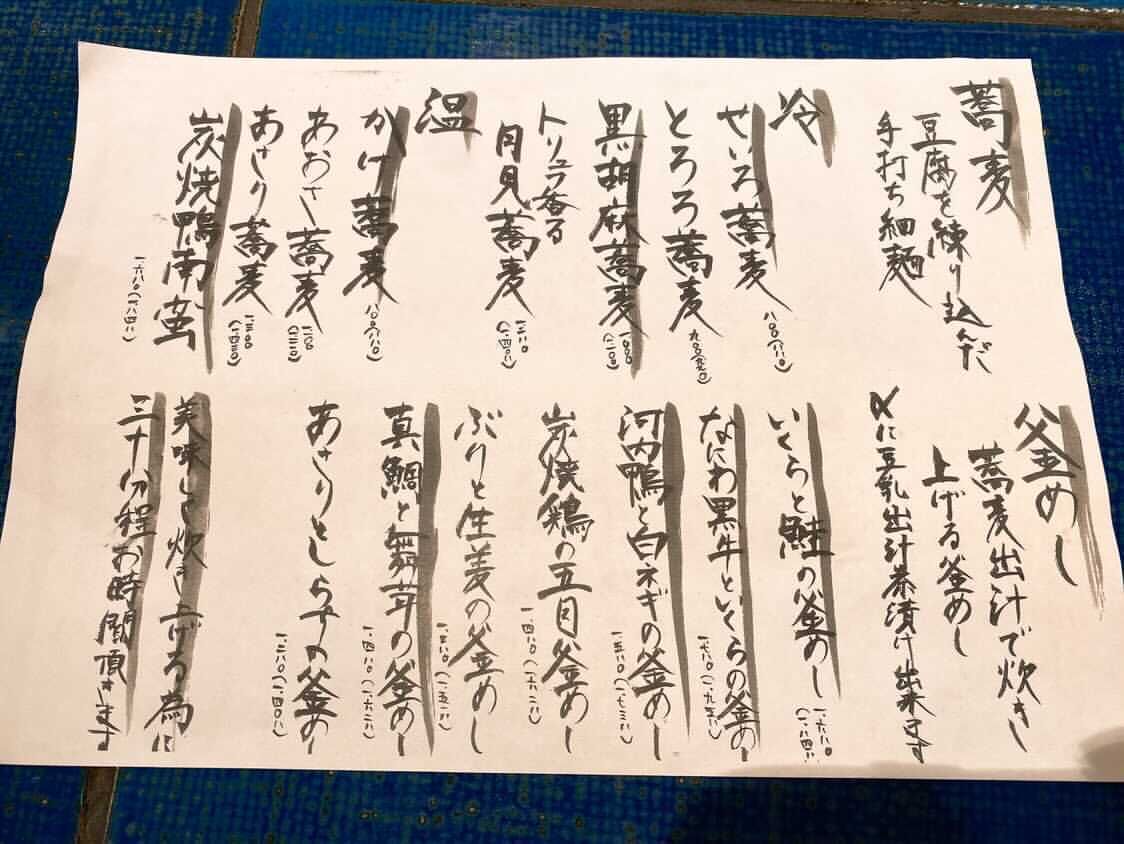 蕎麦
豆腐を練り込んだ
手打ち細麺
冷
せいろ蕎麦 八〇〇(八八〇)
とろろ蕎麦 九〇〇(九九〇)
黒胡麻蕎麦 一、〇〇〇(一、一〇〇)
トリュフ香る
月見蕎麦 一、二八〇(一、四〇八)
温
かけ蕎麦 八〇〇(八八〇)
あおさ蕎麦 一、一〇〇(一、二一〇)
あさり蕎麦 一、三〇〇(一、四三〇)
炭焼鴨南蛮 一、六八〇(一、八四八)
釜めし
蕎麦出汁で炊き
上げる釜めし
〆に豆乳出汁茶漬け出来ます
いくらと鮭の釜めし 一、六八〇(一、八四八)
なにわ黒牛といくらの釜めし 一、七八〇(一、九五八)
河内鴨と白ネギの釜めし 一、五八〇(一、七三八)
炭焼鶏の五目釜めし 一、四八〇(一、六二八)
ぶりと生姜の釜めし 一、三八〇(一、五一八)
真鯛と舞茸の釜めし 一、四八〇(一、六二八)
あさりとしらすの釜めし 一、二八〇(一、四〇八)
美味しく炊き上げる為に
三十分程お時間頂きます